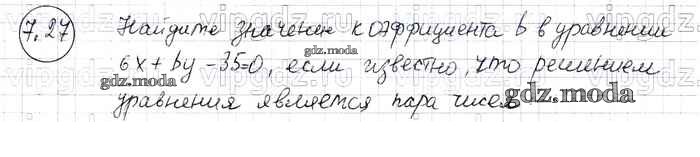 7.27 Найдите значение коэффициента b в уравнении
6x + by - 35=0, если известно, что решением
уравнения является пара чисел
gdz.moda
gdz.moda
gdz.moda